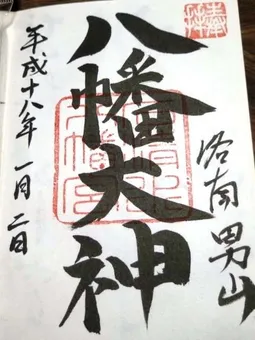 奉拝
洛南 男山
八幡大神
平成十八年 一月 二日